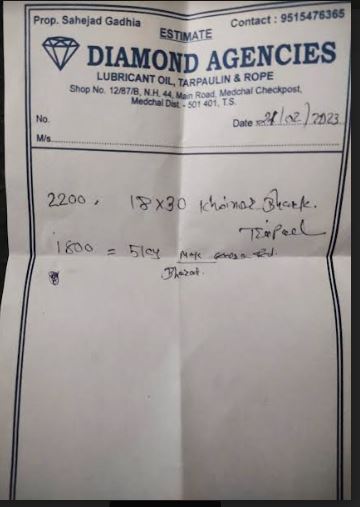 Prop. Sahejad Gadhia Contact : 9515476365
ESTIMATE
DIAMOND AGENCIES
LUBRICANT OIL, TARPAULIN & ROPE
Shop No. 12/87/B, N.H. 44, Main Road, Medchal Checkpost,
Medchal Dist. - 501 401, T.S.
No. Date 28/02/2023
M/s
2200, 18x30
1800 =